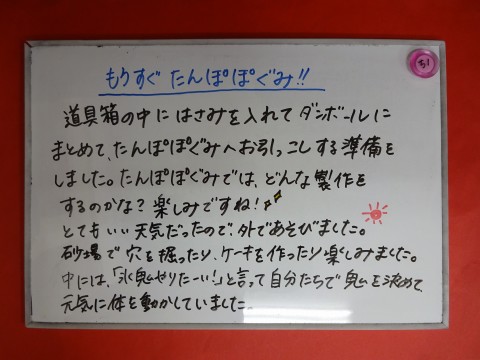 もうすぐ たんぽぽぐみ!!
ち1
道具箱の中に はさみを入れて ダンボールに
まとめて、たんぽぽぐみへお引っこしする準備を
しました。たんぽぽぐみでは、どんな製作を
するのかな?楽しみですね!
とてもいい天気だったので、外であそびました。
砂場で穴を掘ったり、ケーキを作ったり楽しみました。
中には、「氷鬼やりたーい!」と言って自分たちで鬼を決めて、
元気に体を動かしていました。